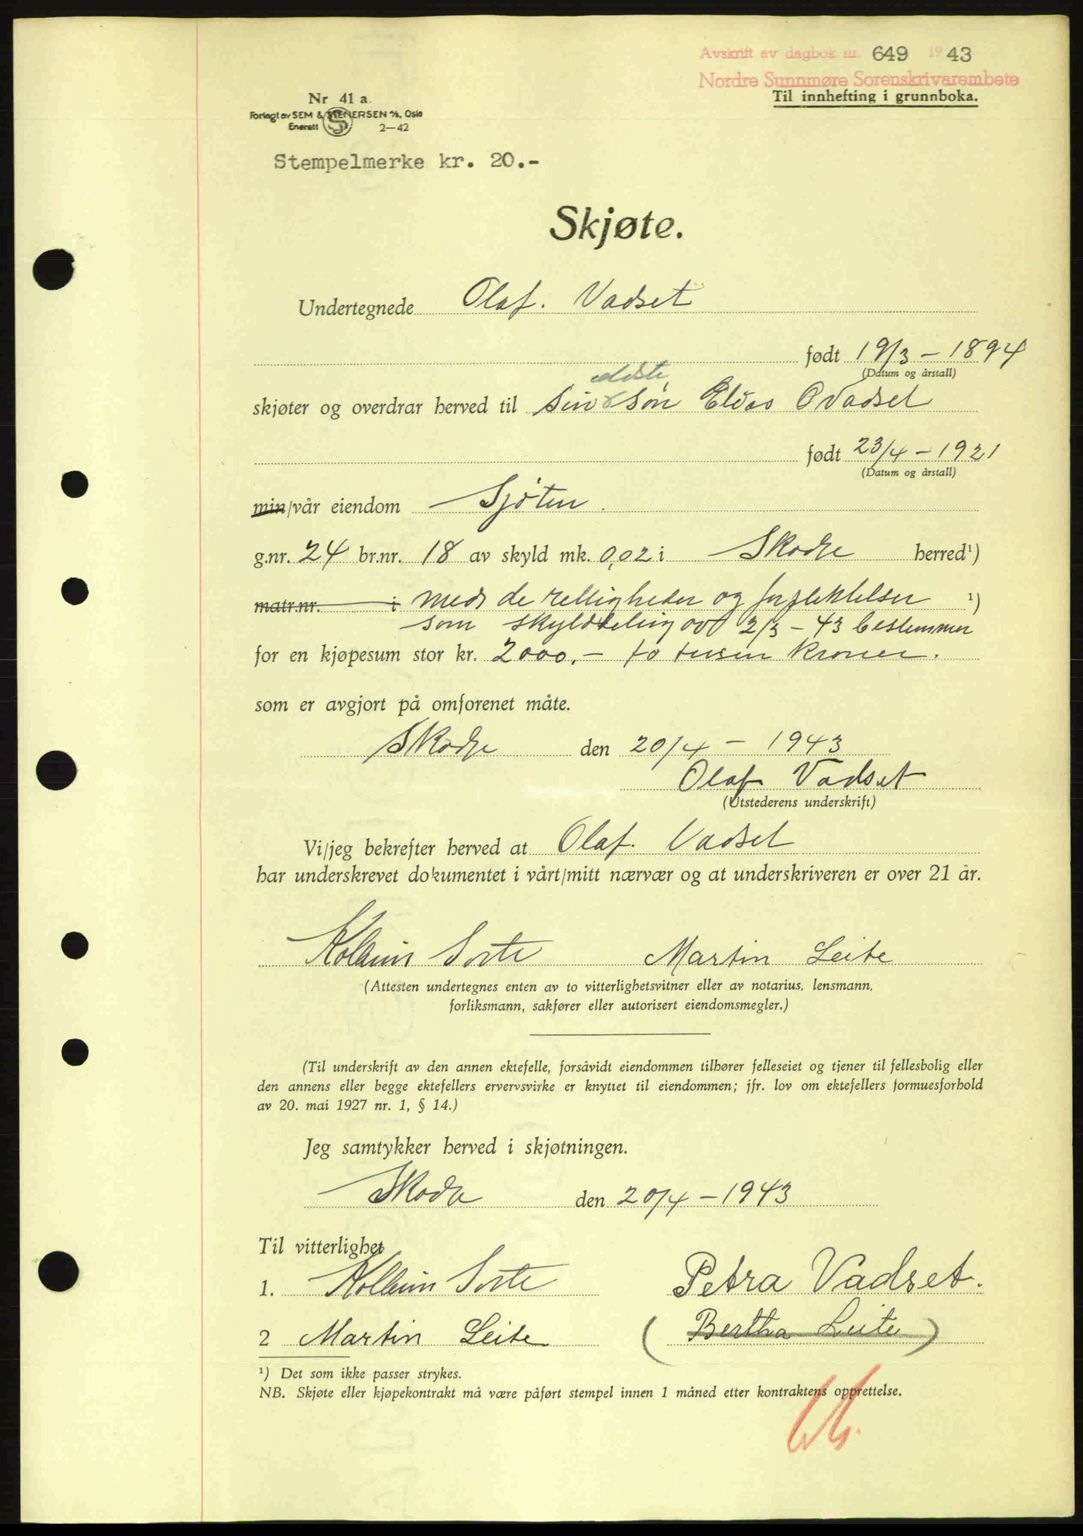 Avskrift av dagbok nr. 649 1943
Nordre Sunnmøre Sorenskrivarembete
Til innhefting i grunnboka.
Nr 41 a.
Forlagt av SEM & STENERSEN A/S, Oslo
Enerett 2—42
Stempelmerke kr. 20.-
Skjøte.
Undertegnede Olaf. Vadset
født 19/3 - 1894
(Datum og årstall)
eldste
skjøter og overdrar herved til sin søn Elias O Vadset
født 23/4 - 1921
(Datum og årstall)
min/vår eiendom Sjöten.
g.nr. 24 br.nr. 18 av skyld mk. 0,02 i Skodje herred¹)
matr.nr. i med de rettigheder og forpliktelser ¹)
som skylddeling av 2/3 - 43 bestemmer
for en kjøpesum stor kr. 2000.- to tusen kroner.
som er avgjort på omforenet måte.
Skodje den 20/4 - 1943
Olaf Vadset
(Utstederens underskrift)
Vi/jeg bekrefter herved at Olaf. Vadset
har underskrevet dokumentet i vårt/mitt nærvær og at underskriveren er over 21 år.
Kolbein Sorte Martin Leite
(Attesten undertegnes enten av to vitterlighetsvitner eller av notarius, lensmann,
forliksmann, sakfører eller autorisert eiendomsmegler.)
(Til underskrift av den annen ektefelle, forsåvidt eiendommen tilhører felleseiet og tjener til fellesbolig eller
den annens eller begge ektefellers ervervsvirke er knyttet til eiendommen; jfr. lov om ektefellers formuesforhold
av 20. mai 1927 nr. 1, § 14.)
Jeg samtykker herved i skjøtningen.
Skodje den 20/4 - 1943
Til vitterlighet
1. Kolbein Sorte Petra Vadset.
2 Martin Leite (Bertha Leite)
¹) Det som ikke passer strykes.
NB. Skjøte eller kjøpekontrakt må være påført stempel innen 1 måned etter kontraktens opprettelse.